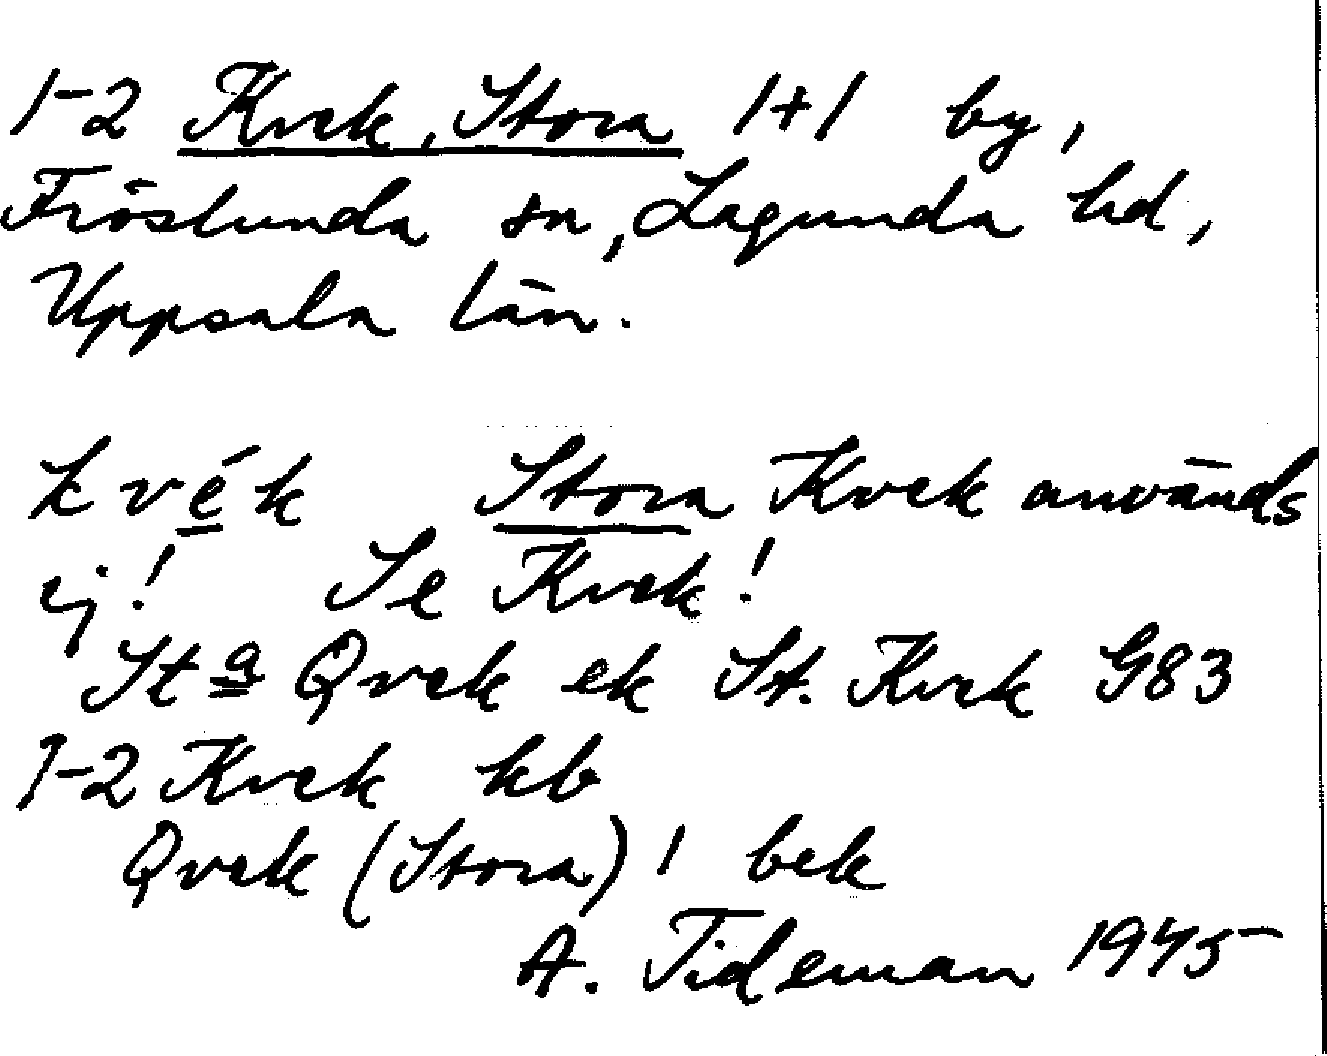 1-2 Kvek, Stora 1+1 by,
Fröslunda sn, Lagunda hd,
Uppsala län.
kvék Stora Kvek används
ej! Se Kvek!
Sta Qvek ek St. Kvek G83
1-2 Kvek kb
Qvek (Stora) 1 bek
A. Tideman 1945